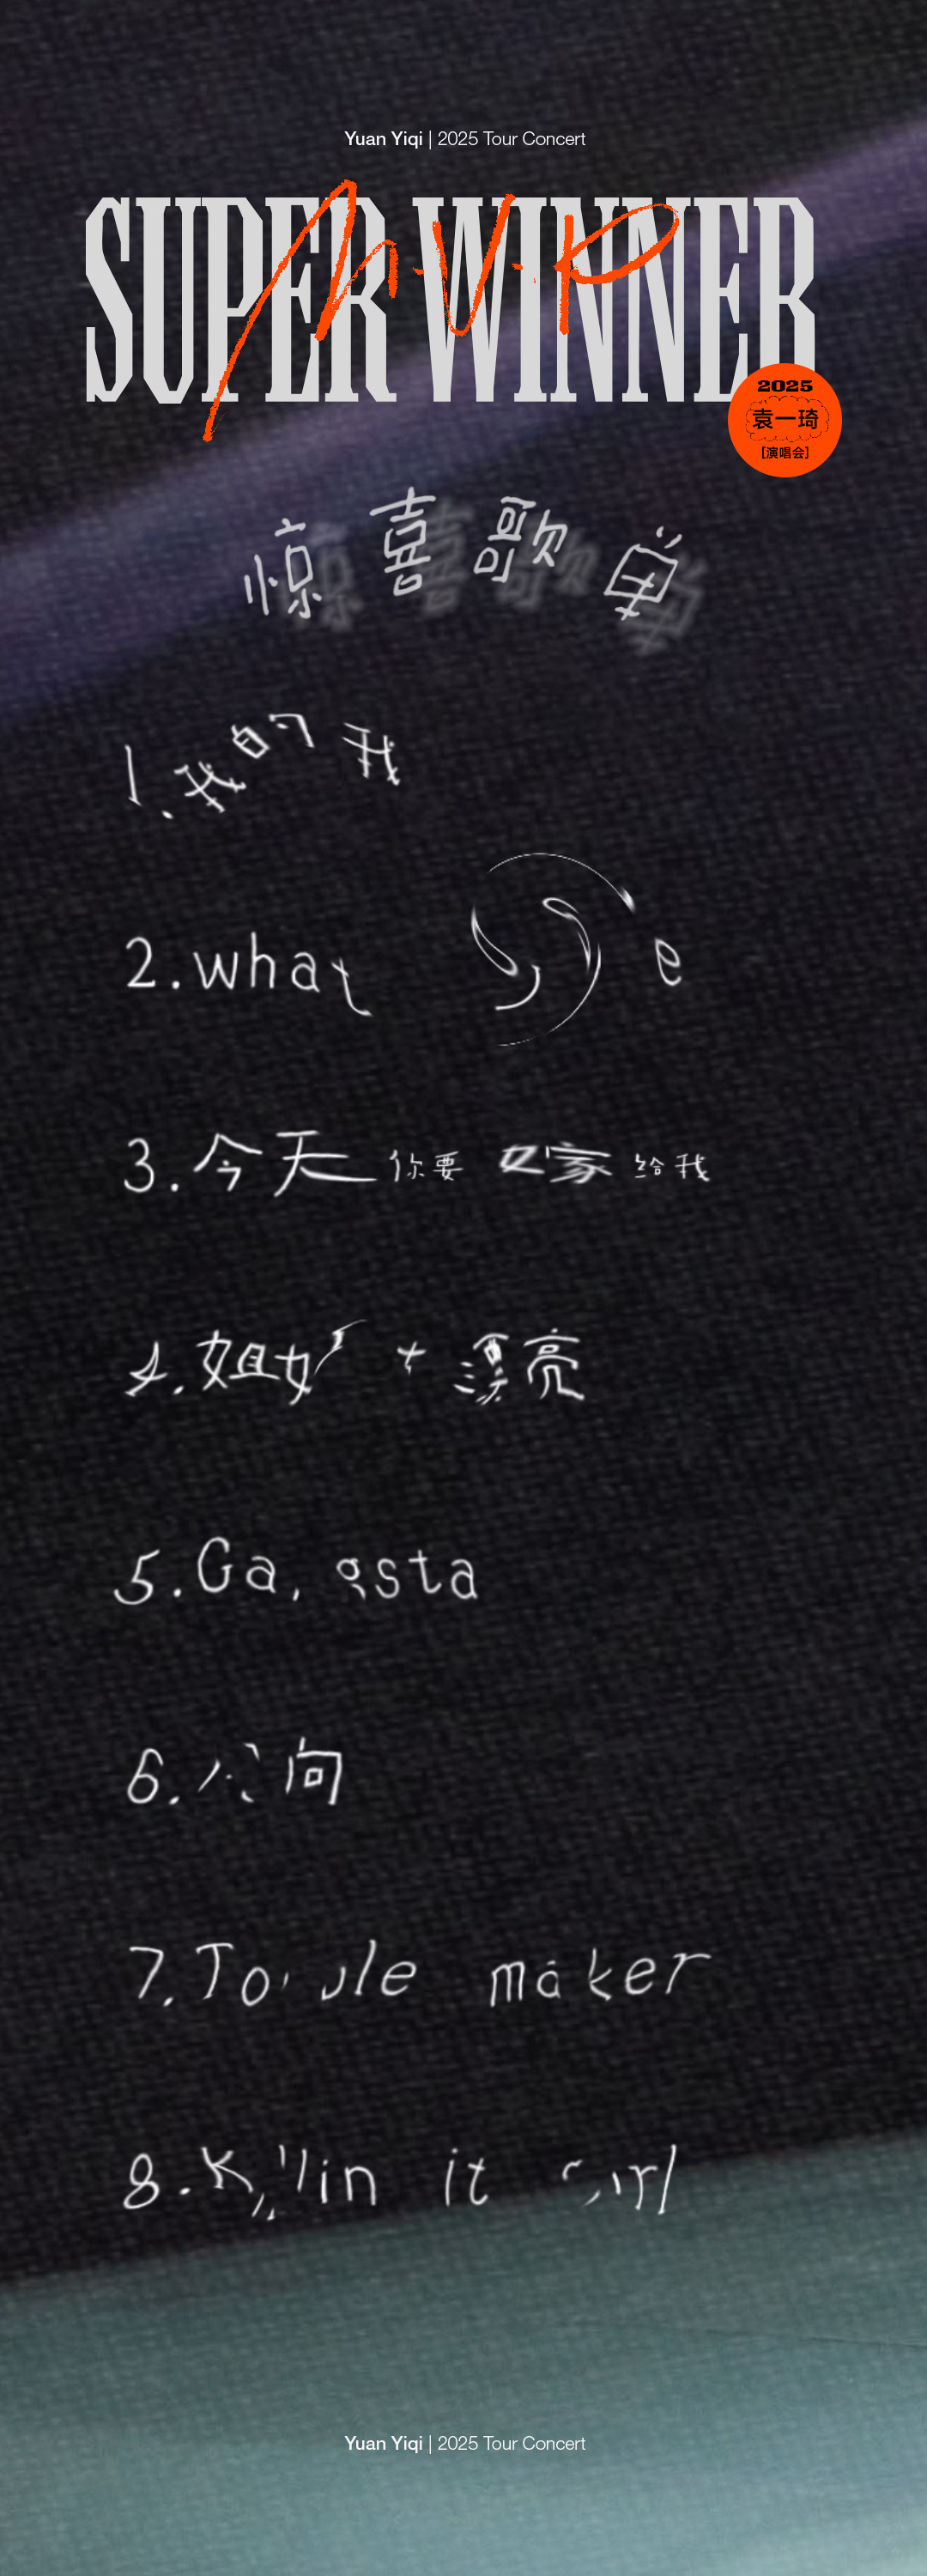 Yuan Yiqi | 2025 Tour Concert
SUPER WINNER
M·V·P
2025
袁一琦
[演唱会]
惊喜歌单
1.我的我
2.what e
3.今天你要 给我
4.姐 + 漂亮
5.Ga, gsta
6. 向
7. maker
8. it
Yuan Yiqi | 2025 Tour Concert